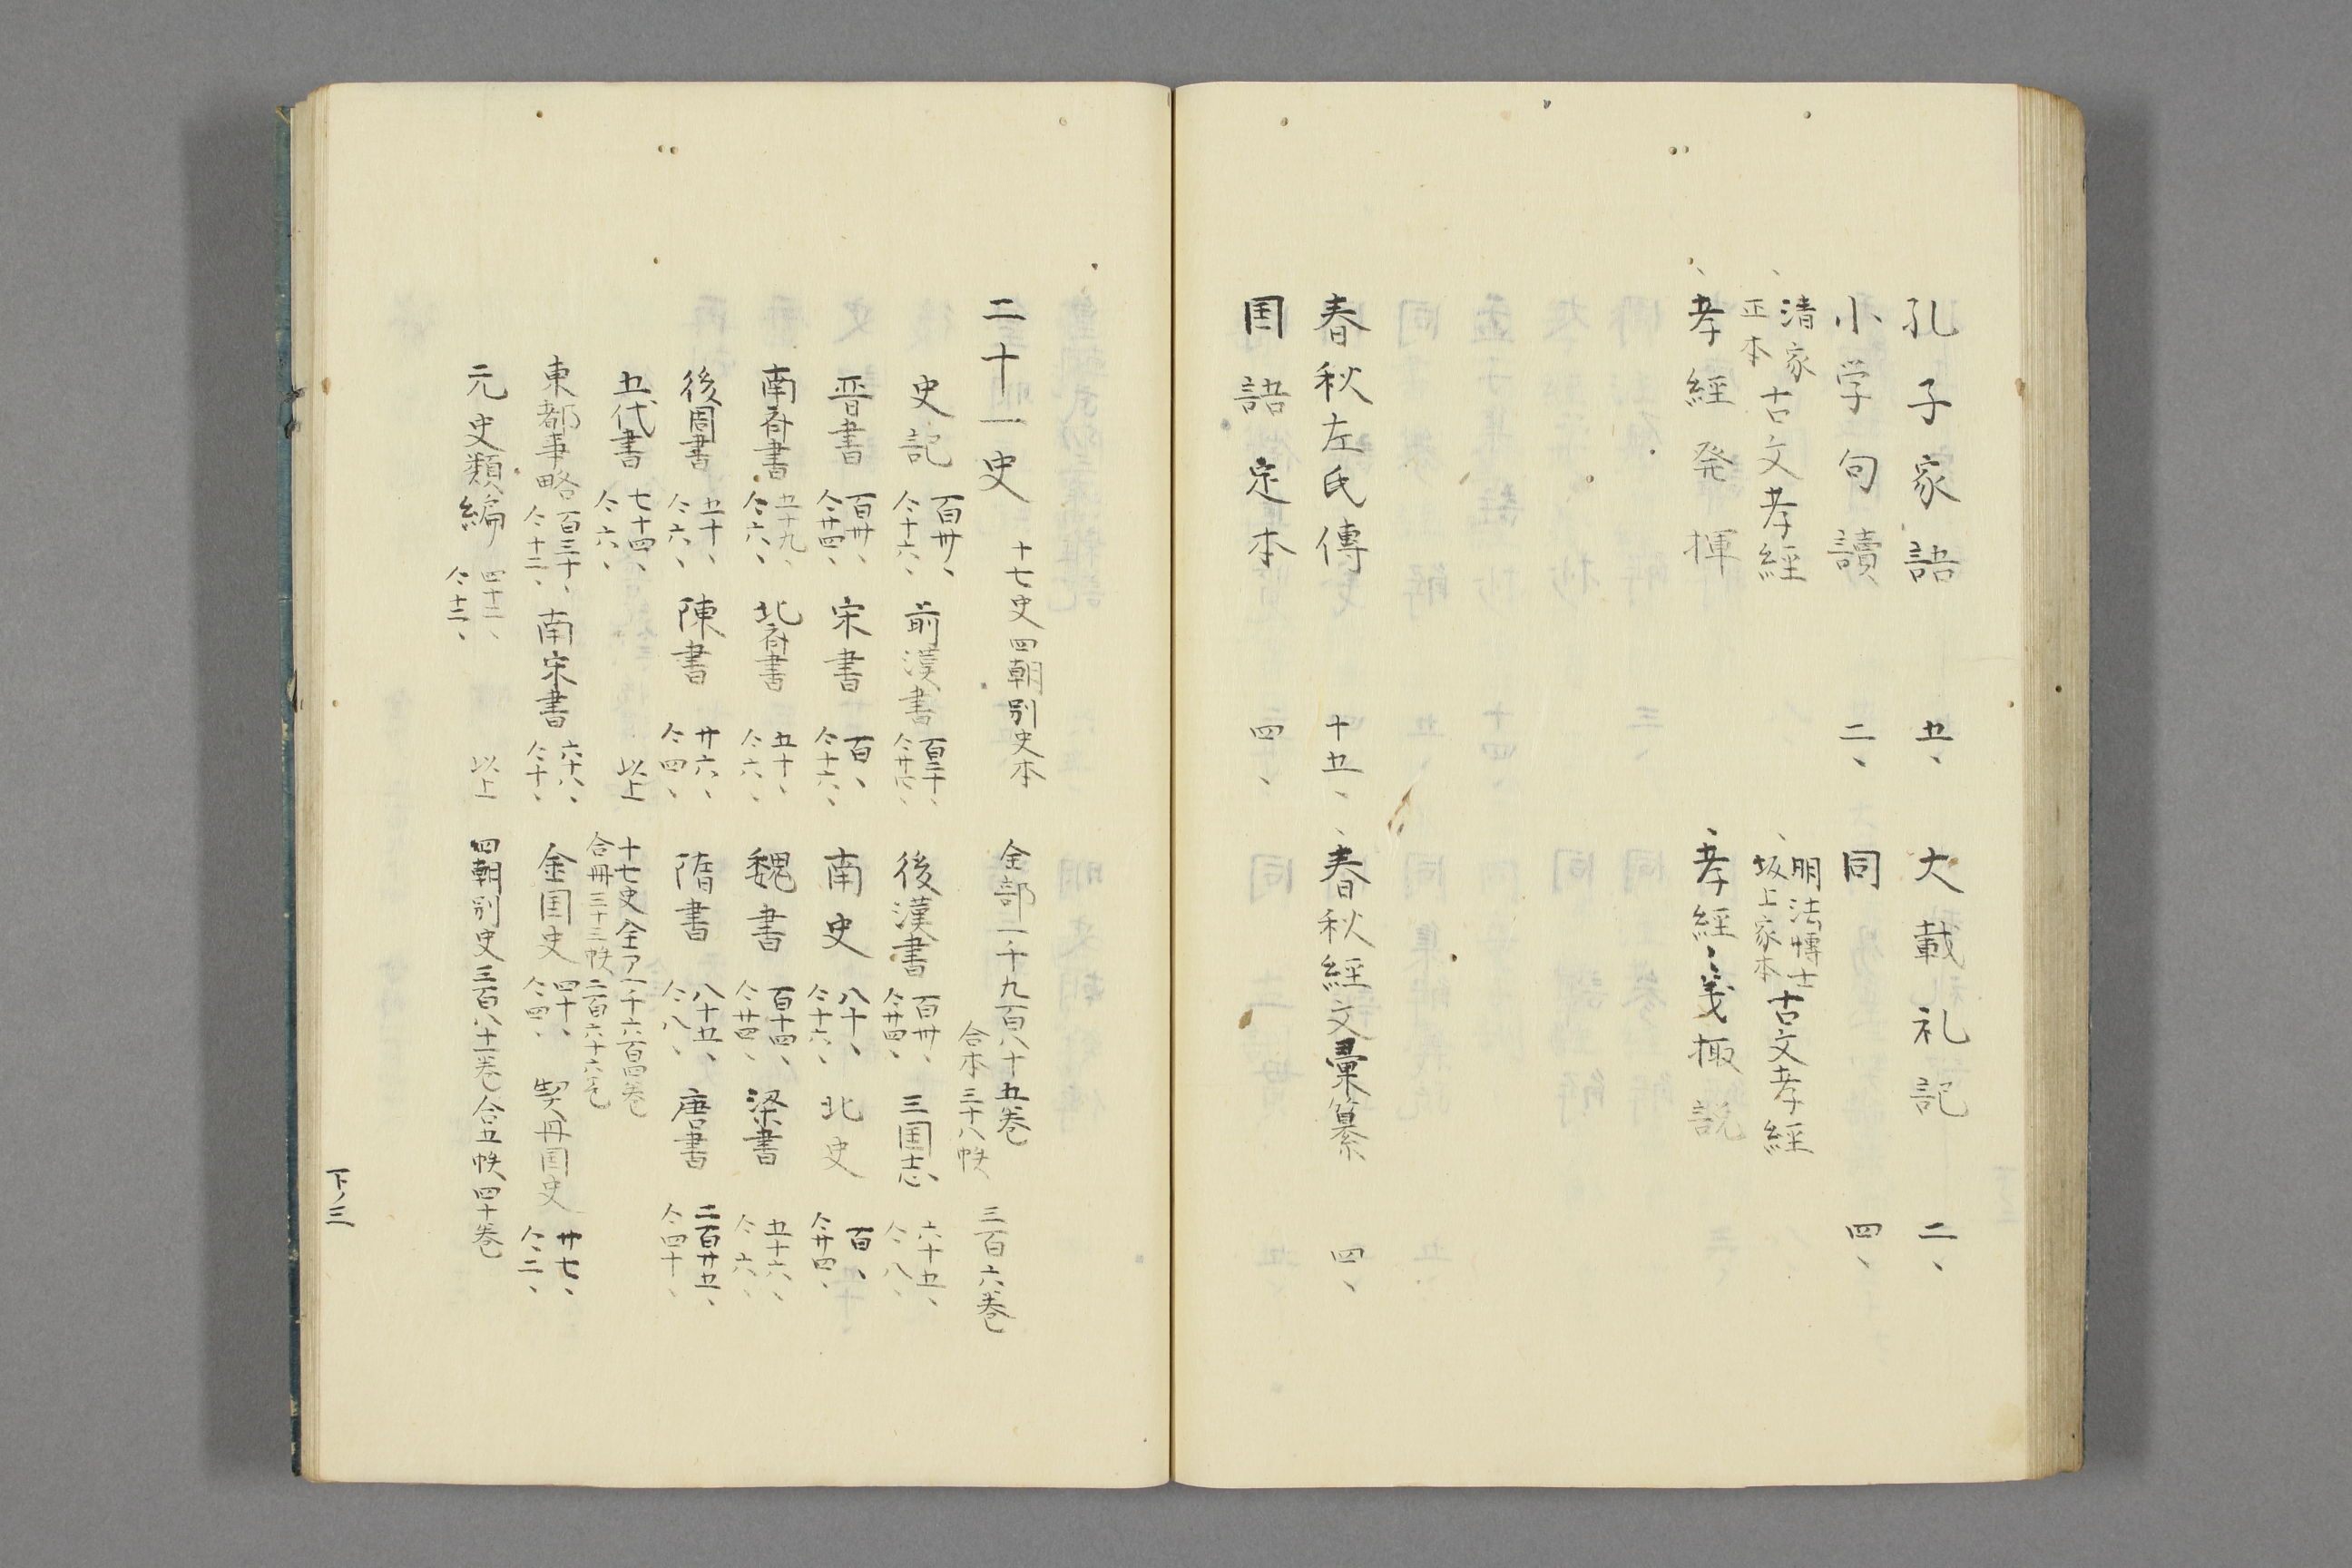 孔子家語 五、 大載礼記 二、
小学句讀 二、 同 四、
、清家正本 古文孝經 、明法博士坂上家本 古文孝經
、孝經発揮 、孝經、箋掫説
春秋左氏傳 十五、 、春秋經文彙纂 四、
国語定本 四、
二十一史 十七史四朝別史本 全部一千九百八十五巻 合本三十八帙 三百六巻
史記 百卅、 仝十六、 前漢書 百二十、 後漢書 百卅、 仝廿四、 三国志 六十五、 仝八、
晋書 百卅、 仝廿四、 宋書 百、 仝十六、 南史 八十、 仝十六、 北史 百、 仝廿四、
南斉書 五十九、 仝六、 北斉書 五十、 仝六、 魏書 百十四、 仝廿四、 梁書 五十六、 仝六、
後周書 五十、 仝六、 陳書 卅六、 仝四、 隋書 八十五、 仝八、 唐書 二百廿五、 仝四十、
五代書 七十四、 仝六、 以上 十七史全ア一千六百四巻 合冊三十三帙二百六十六巻
東都事略 百三十、 仝十二、 南宋書 六十八、 仝十、 金国史 四十、 仝四、 契丹国史 廿七、 仝二、
元史類編 四十二、 仝十二、 以上 四朝別史三百八十一巻合五帙四十巻
下ノ三